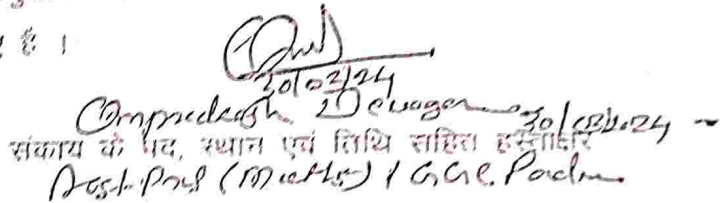 है ।
30/02/24
Omprakash Dewagan 30/02/24
संकाय के पद, स्थान एवं तिथि सहित हस्ताक्षर
Asst. Prof (Maths) / G.G.C.